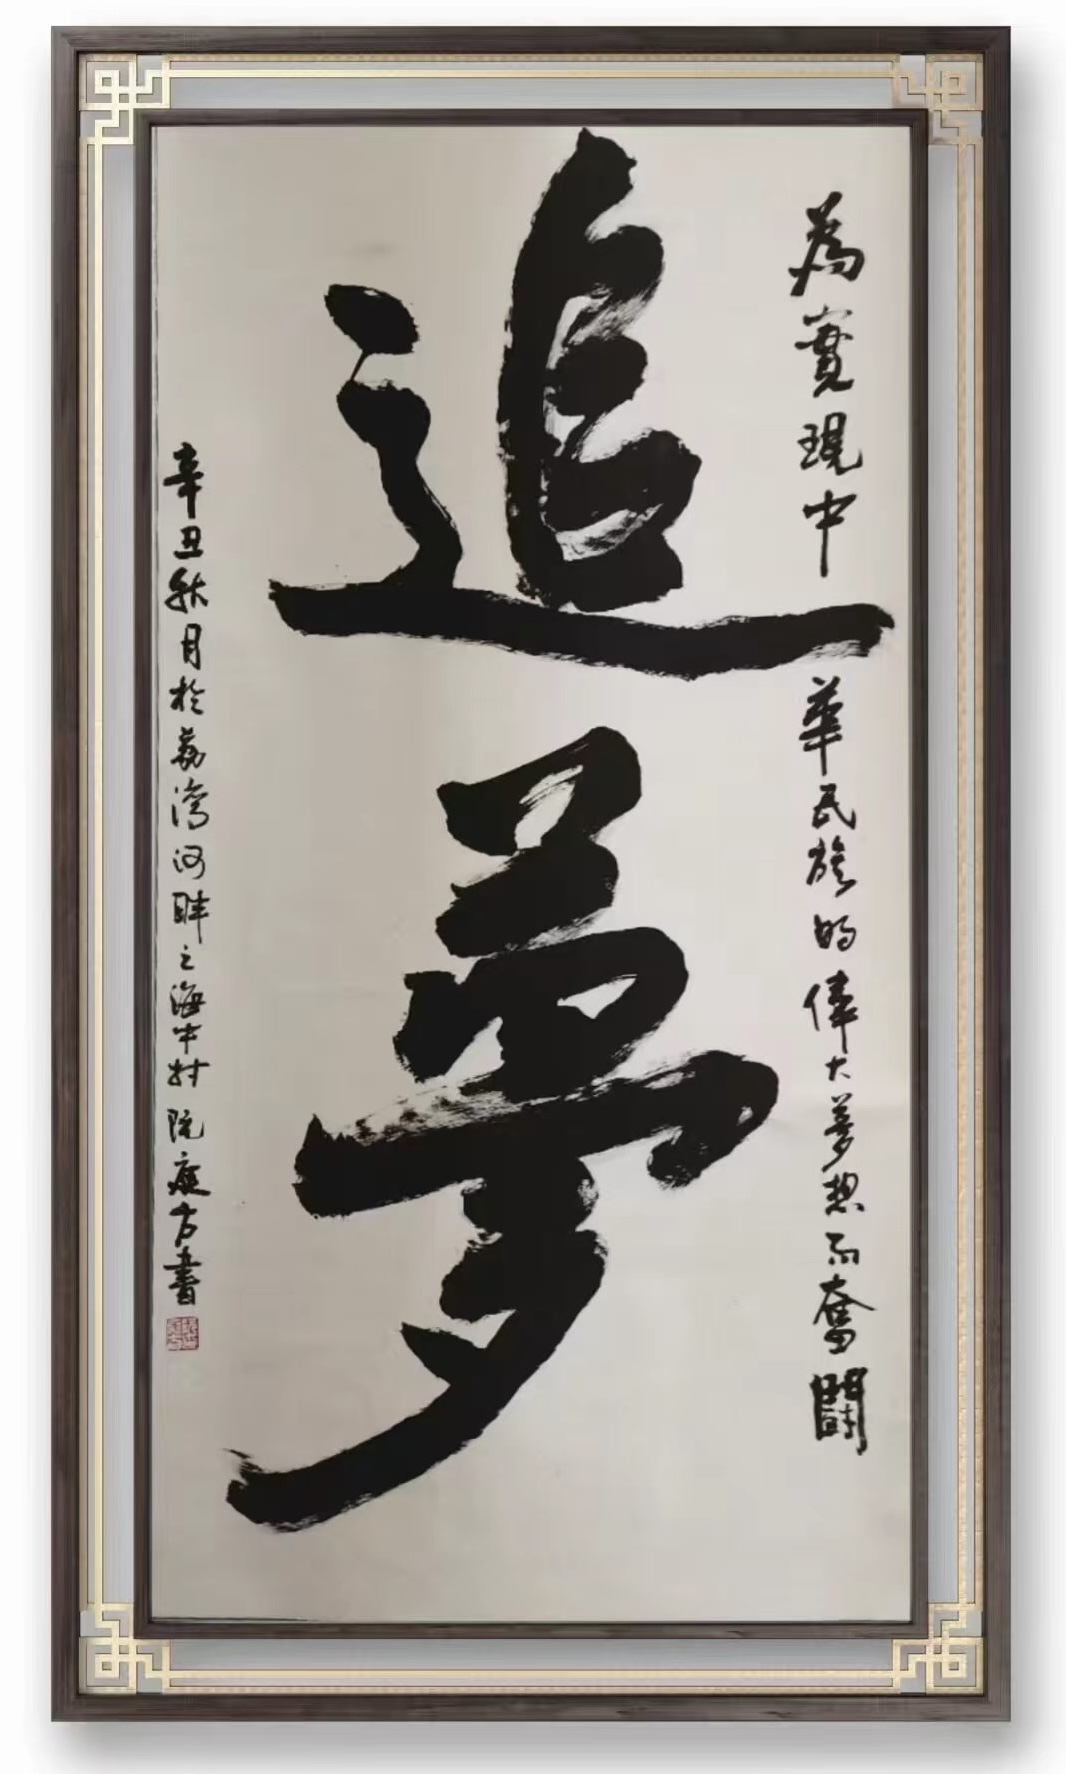 為實現中華民族的偉大夢想而奮鬪
追夢
辛丑秋月於荔灣河畔之海中村阮庭方書